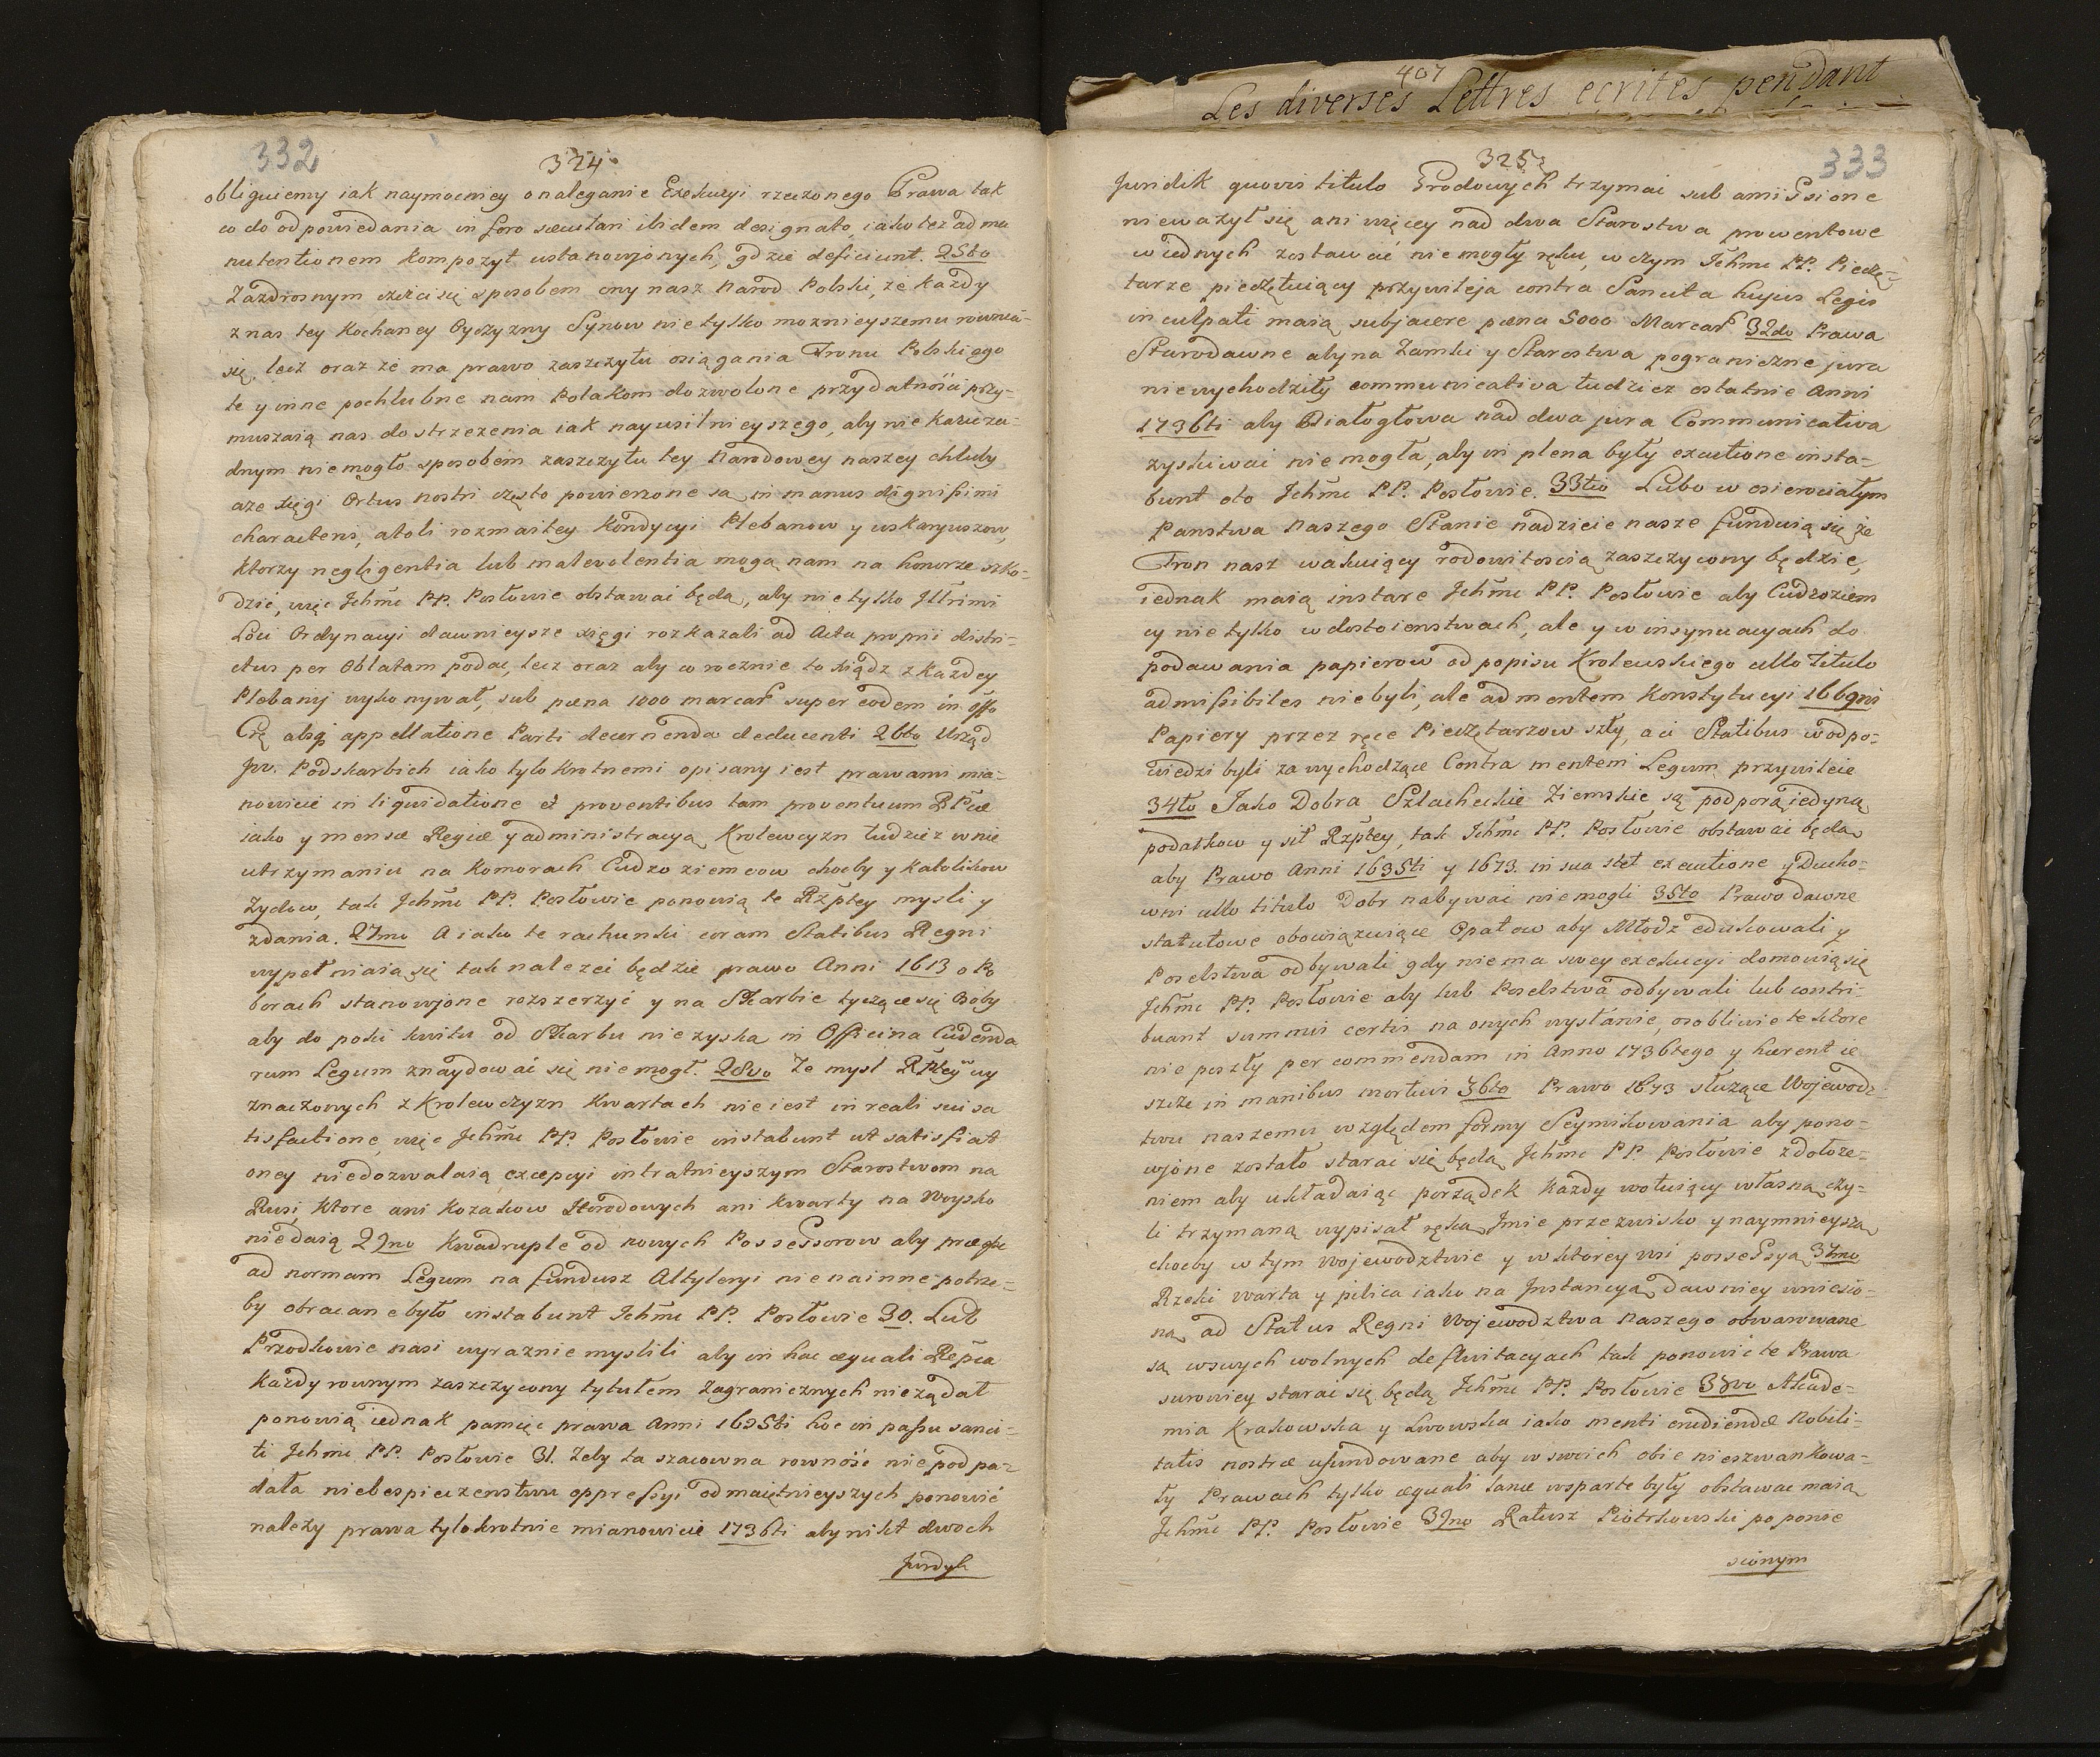 332
324.
obliguiemy iak naymocniey o naleganie Exekucyi rzeczonego Prawa tak
co do odpowiedania in foro saeculari ibidem designato, iako też ad ma
nutentionem kompozyt ustanowionych, gdzie deficiunt. 25to
Zazdrosnym czści się sposobem ony nasz Narod Polski, że każdy
z nas tey kochaney Oyczyzny Synow nie tylko moznieyszemu rowna-
się, lecz oraz że ma prawo zaszczytu osiągania Tronu Polskiego
te y inne pochlubne nam Polakom dozwolone przydatności przy-
muszaią nas do strzezenia iak nayusilnieyszego, aby nie
dnym niemogło sposobem zaszczytu tey Narodowey naszey chluby
aze xięgi Ortus nostri często powierzone są in manus dignissimi
characteris, atoli rozmaitey kondycyi Plebanow y wikaryuszow,
ktorzy negligentia lub malevolentia mogą nam na honorze szko-
dzić, więc Jchmc PP. Posłowie obstawać będą, aby nie tylko Jllrimi
Loci Ordynacyi dawnieysze xięgi rozkazali ad Acta proprii distri-
ctus per Oblatam podać, lecz oraz aby corocznie to xiądz z każdey
Plebanij wykonywał, sub paena 1000 marcar super eodem in offo
absq appellatione Parti decernenda deducenti 26to Urząd
Jw. Podskarbich iako tylokrotnemi opisany iest prawami mia-
nowicie in liquidatione et proventibus tam proventuum RPcae
iako y mensae Regiae y administracyą Krolewczyzn tudzież w nie
utrzymaniu na Komorach Cudzoziemcow choćby y katolikow
Zydow, tak Jchmc PP. Posłowie ponowią te Rzptey mysli y
zdania. 27mo A iako te rachunki coram Statibus Regni
wypełniaią się tak nalezeć będzie prawo Anni 1613 o Po
borach stanowione rozszerzyć y na Skarbie tyczące się Osoby
aby do poki kwitu od Skarbu nie zyska in Officina Cudenda
rum Legum znaydować się niemogł. 28vo Ze mysl RPtey wy
znaczonych z Krolewczyzn kwartach nie iest in reali sui sa
tisfactione, więc Jchmc PP. Posłowie instabunt ut satisfiat
oney niedozwalaią excepcyi intratnieyszym Starostwom na
Rusi, ktore ani Kozakow Horodowych ani kwarty na Woysko
niedaią 29no Kwadruple od nowych Possessorow aby
ad normam Legum na fundusz Altyleryi nie na inne potrze-
by obracane było instabunt Jchmc PP. Posłowie 30. Lub
Przodkowie nasi wyraznie myslili aby in hac aequali Repca
każdy rownym zaszczycony tytułem zagranicznych nieządał
ponowią iednak pamięć prawa Anni 1695ti hoc in passu sanci-
ti Jchmc PP. Posłowie 31. Zeby ta szacowna rowność nie podpa-
dała niebespieczenstwu oppressyi od maiętnieyszych ponowić
nalezy prawa tylokrotnie mianowicie 1736ti aby nikt dwoch
Jurdyk
407
Les diverses Lettres ecrites pendant
325
333
Juridik quovis titulo Grodowych trzymać sub amissione
niewazył się ani więcey nad dwa Starostwa prowentowe
w iednych zostawać niemogły ręku, w czym Jchmc PP. Piecze-
tarze pieczętuiący przywileja contra Sancita hujus Legis
inculpati maią subjacere paena 5000 Marcar 32do Prawa
Starodawne aby na Zamki y Starostwa pograniczne jura
niewychodziły communicativa tudziez ostatnie Anni
1736ti aby Białogłowa nad dwa jura Communicativa
zyskiwać niemogła, aby in plena były executione insta-
bunt oto Jchmc PP. Posłowie. 33tio Lubo w osierociałym
Panstwa Naszego Stanie nadzieie nasze funduią się że
Tron nasz wakuiący rodowitoscią zaszczycony będzie,
iednak maią instare Jchmc PP. Posłowie aby Cudzoziem
cy nie tylko w dostoienstwach, ale y w insynuacyach do
podawania papierow od popisu Krolewskiego ullo titulo
admissibiles niebyli, ale ad mentem Konstytucyi 1669ni
Papiery przez ręce Pieczętarzow szły, a ci Statibus w odpo-
wiedzi byli za wychodzące Contra mentem Legum przywileie
34to Jako Dobra Szlacheckie Ziemskie są podporą iedyną
podatkow y sił Rzptey, tak Jchmc PP. Posłowie obstawać będą
aby Prawo Anni 1635ti y 1673. in sua stet executione y Ducho-
wni ullo titulo Dobr nabywać niemogli 35to Prawo dawne
statutowe obowiązuiące Opatow aby Młodz edukowali y
Poselstwa odbywali gdy niema swey exekucyi domowią się
Jchmc PP. Posłowie aby lub Poselstwa odbywali lub contri-
buant summis certis na onych wysłanie, osobliwie te ktore
nie poszły per commendam in Anno 1736tego y haerent ie
szcze in manibus mortuis 36to Prawo 1673 służące Wojewodz-
twu naszemu względem formy Seymikowania aby pono-
wjone zostało starać się będą Jchmc PP. Posłowie z dołoze-
niem aby układaiąc porządek każdy wotuiący własną czy-
li trzymaną wypisał ręką Jmie przezwisko y naymnieyszą
choćby w tym Wojewodztwie y w ktorey wsi possessyą 37mo
Rzeki Warta y pilica iako na Jnstancyą dawniey wniesio-
ną ad Status Regni Wojewodztwa Naszego obwarowane
są wswych wolnych defluitacyach tak ponowić te Prawa
surowiey starać się będą Jchmc PP. Posłowie 38vo Akade-
mia Krakowska y Lwowska iako menti erudiendae Nobili-
tatis nostrae ufundowane aby w swoich obie nieszwankowa-
ły Prawach tylko aequali lance wsparte były obstawać maią
Jchmc PP. Posłowie 39no Ratusz Piotrkowski po ponie
sionym